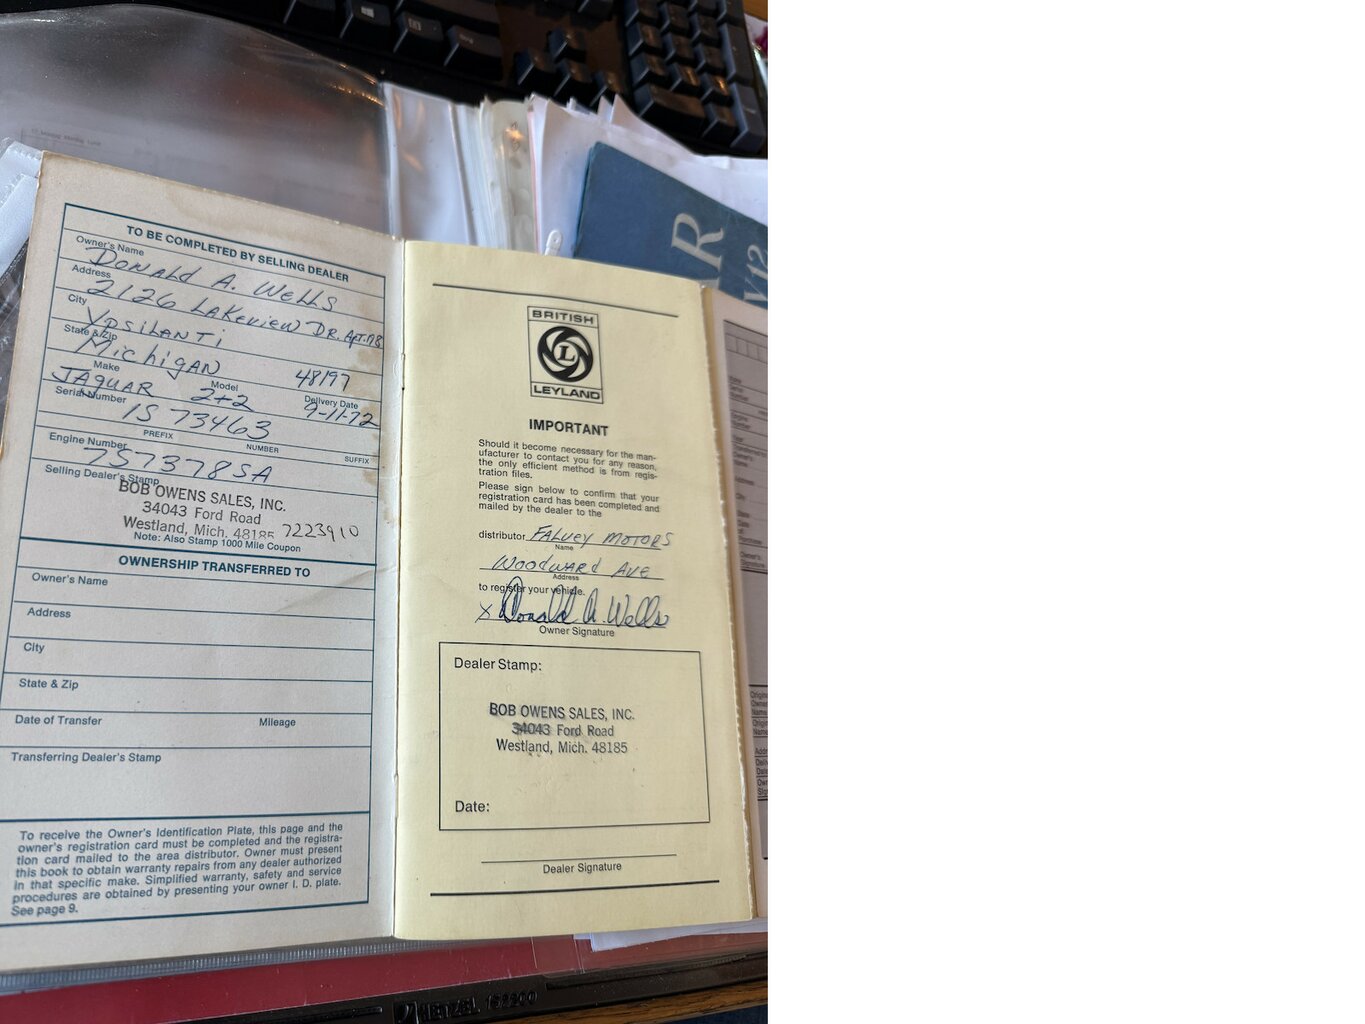 TO BE COMPLETED BY SELLING DEALER
Owner's Name
DONALD A. WELLS
Address
2126 LAKEVIEW DR. APT.
City
YPSILANTI
State & Zip
MICHIGAN 48197
Make Model Delivery Date
JAGUAR 2+2 9-11-72
Serial Number
1S 73463
PREFIX NUMBER SUFFIX
Engine Number
7S7378SA
Selling Dealer's Stamp
BOB OWENS SALES, INC.
34043 Ford Road
Westland, Mich. 48185 7223910
Note: Also Stamp 1000 Mile Coupon
OWNERSHIP TRANSFERRED TO
Owner's Name
Address
City
State & Zip
Date of Transfer Mileage
Transferring Dealer's Stamp
To receive the Owner's Identification Plate, this page and the
owner's registration card must be completed and the registra-
tion card mailed to the area distributor. Owner must present
this book to obtain warranty repairs from any dealer authorized
in that specific make. Simplified warranty, safety and service
procedures are obtained by presenting your owner I. D. plate.
See page 9.
BRITISH
L
LEYLAND
IMPORTANT
Should it become necessary for the man-
ufacturer to contact you for any reason,
the only efficient method is from regis-
tration files.
Please sign below to confirm that your
registration card has been completed and
mailed by the dealer to the
distributor FALVEY MOTORS
Name
WOODWARD AVE
Address
to register your vehicle.
X Donald A. Wells
Owner Signature
Dealer Stamp:
BOB OWENS SALES, INC.
34043 Ford Road
Westland, Mich. 48185
Date:
Dealer Signature
AR
V12